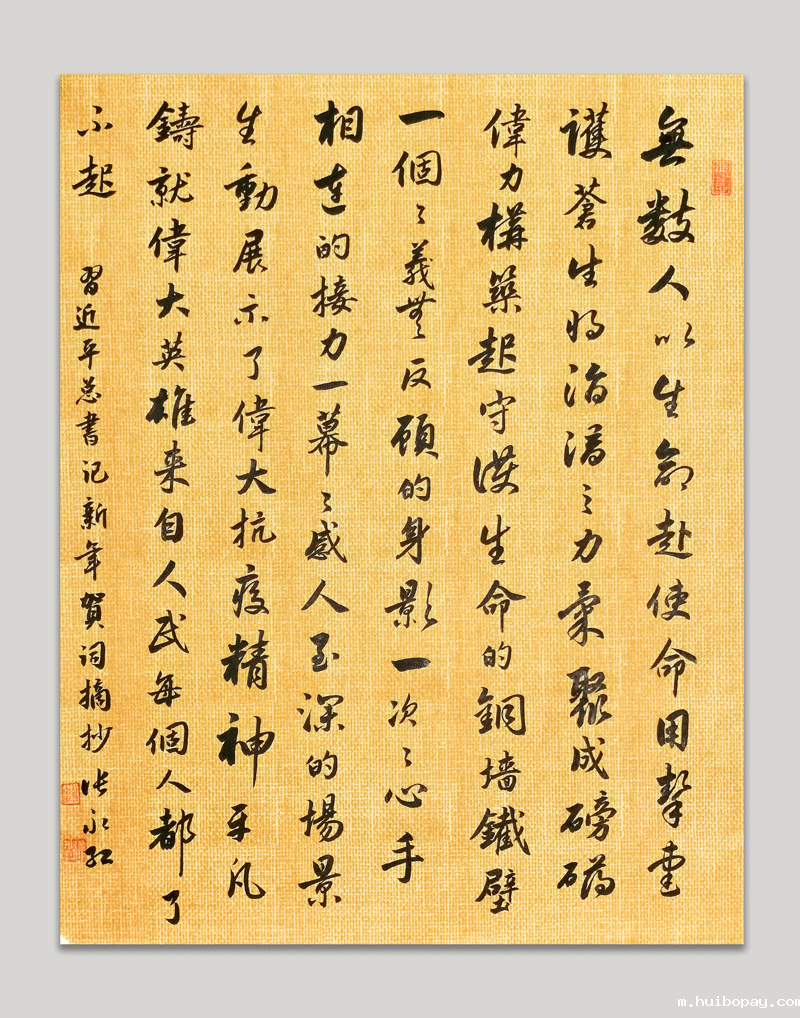 無數人以生命赴使命用摯愛
護蒼生將涓滴之力氣聚成磅礴
偉力構築起守護生命的銅墻鐵壁
一個々義無反顧的身影一次々心手
相連的接力一幕々感人至深的場景
生動展示了偉大抗疫精神平凡
鑄就偉大英雄來自人民每個人都了
不起
習近平总書记新年賀词摘抄 张永红
m.huibopay.com